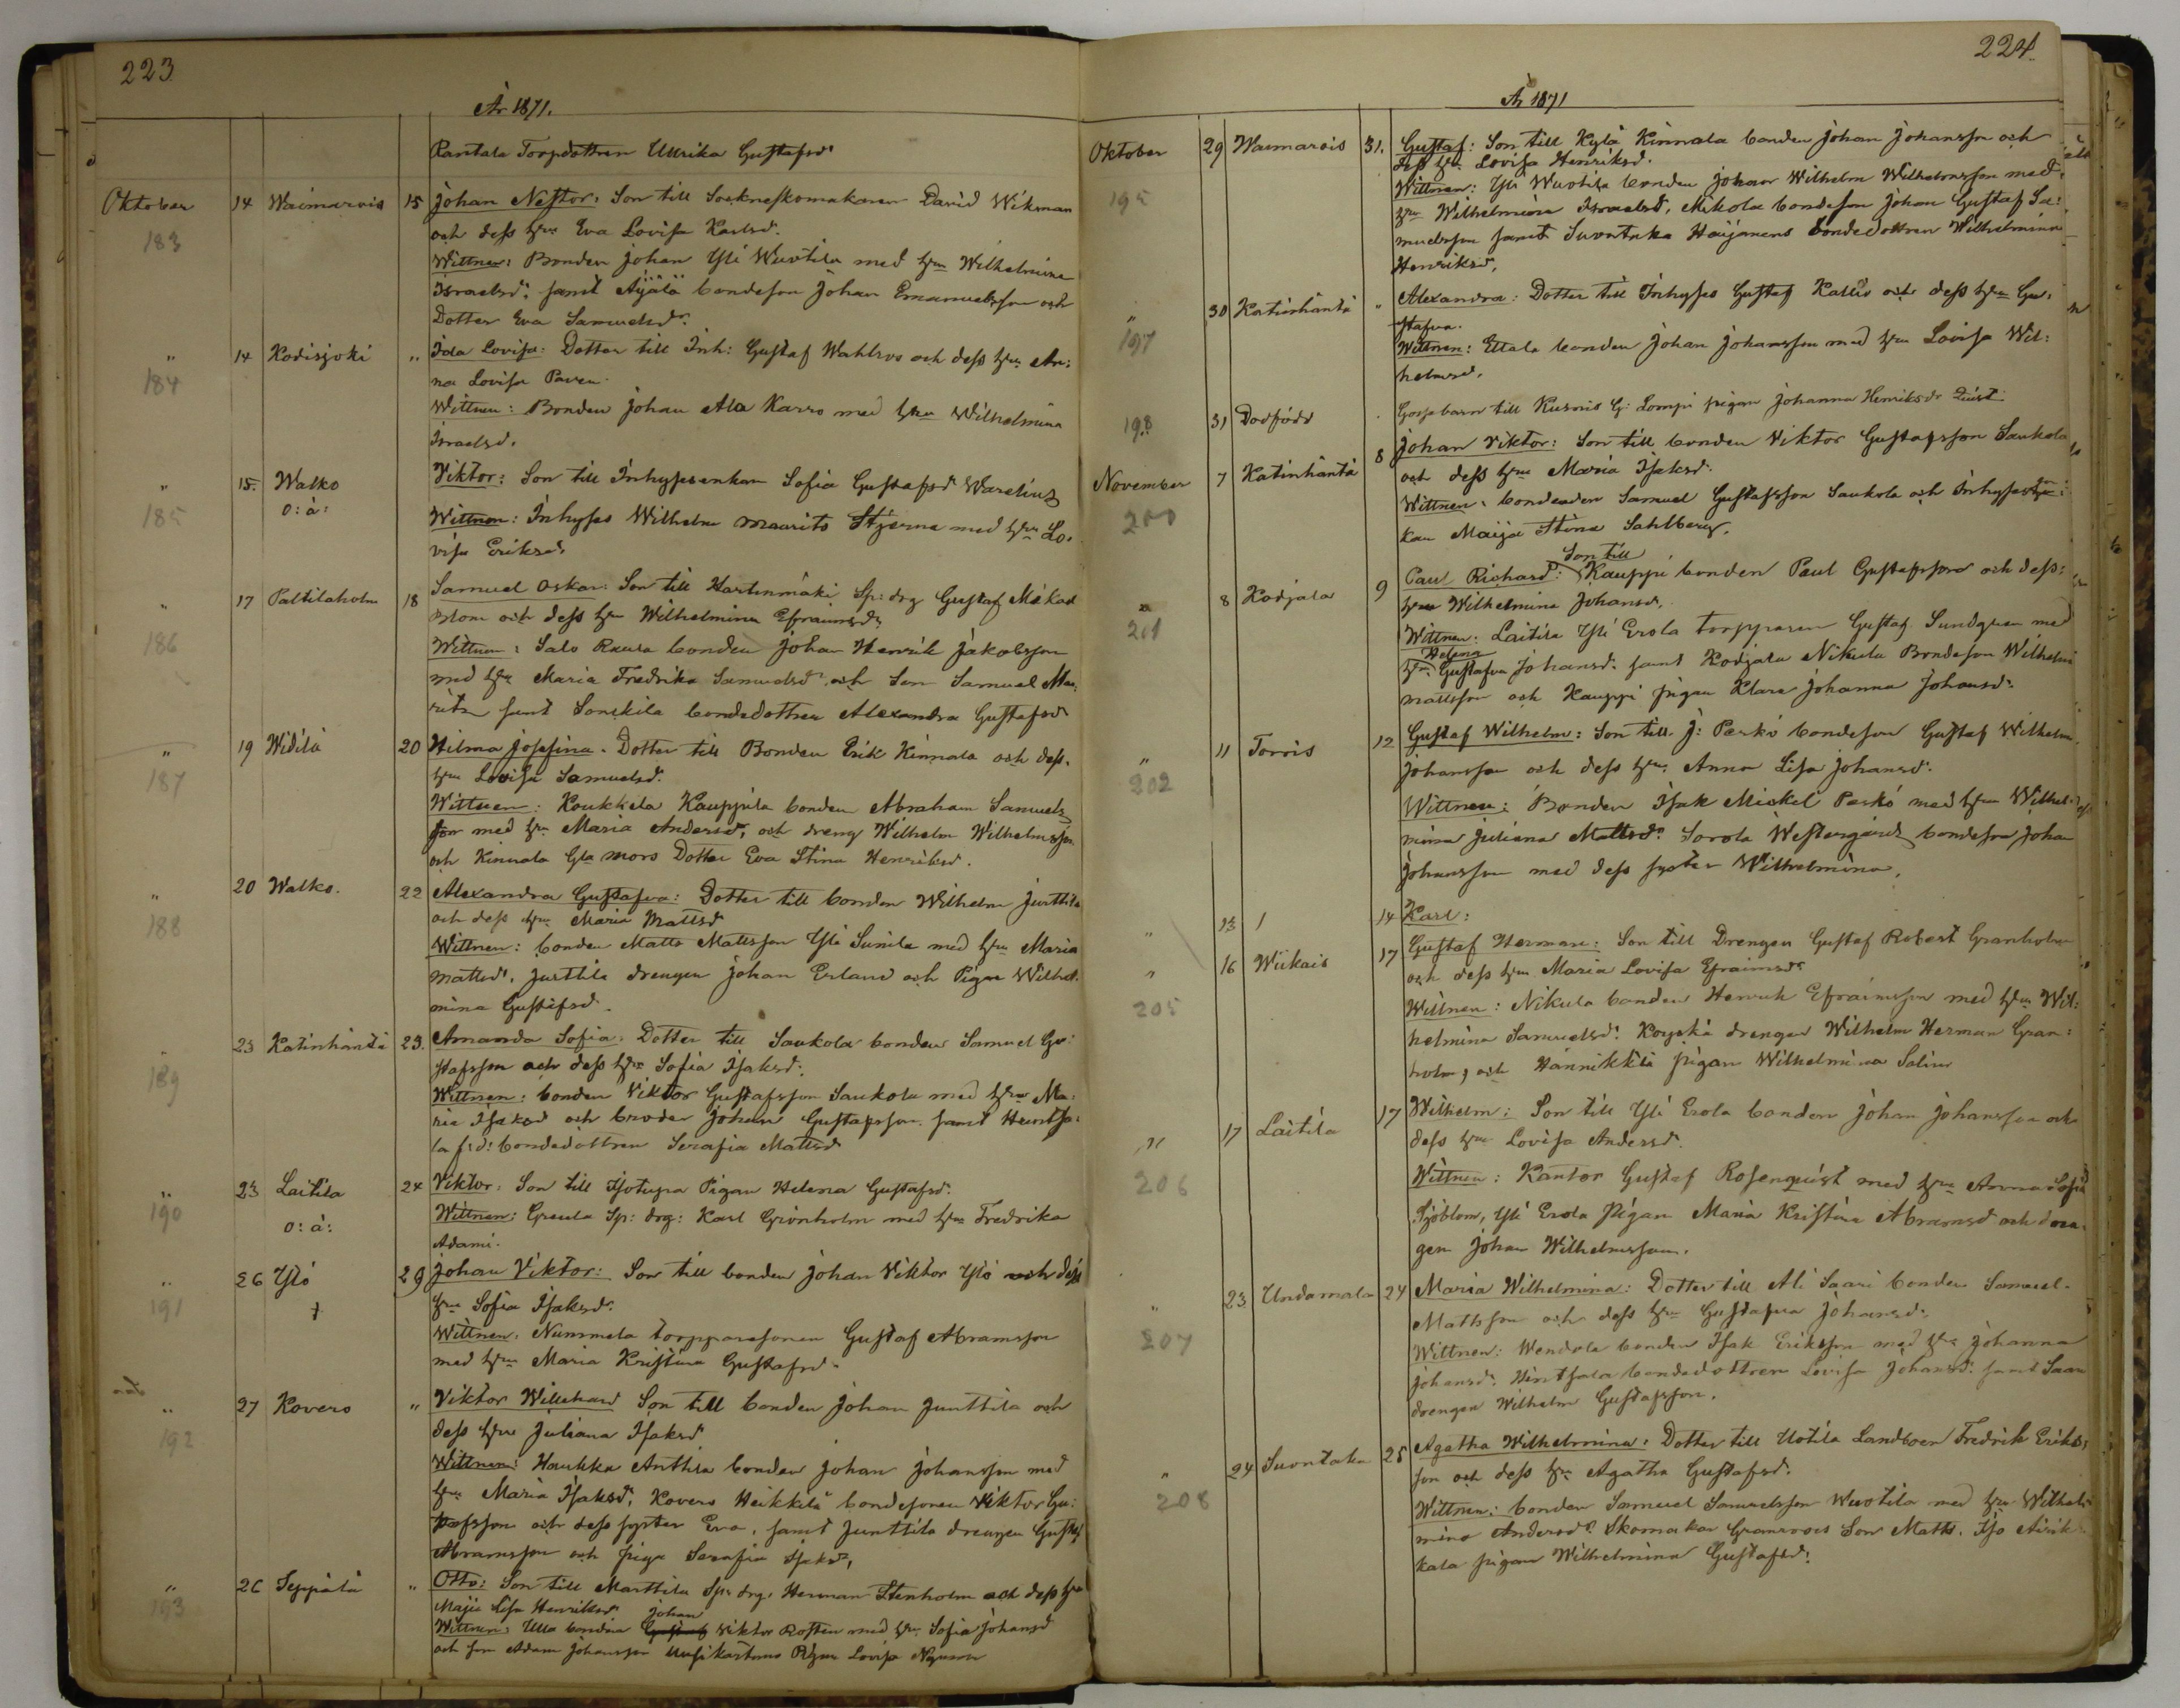 223
År 1871.
Rantala Torpdottren Ulrika Gustafsd:
Oktober 14 Waimarois 15 Johan Nestor: Son till Sockneskomakaren David Wikman
183 och dess h:u Eva Lovisa Karlsd.
Wittnen: Bonden Johan Yli Wuotila med h:u Wilhelmina
Israelsd: samt Äijälä bondeson Johan Emanuelsson och
Dotter Eva Samuelsd:
" 14 Kodisjoki " Ida Lovisa: Dotter till Inh: Gustaf Wahlros och dess h:u An:
184 na Lovisa Paven.
Wittnen: Bonden Johan Ala Karro med h:u Wilhelmina
Israelsd.
" 15. Walko Viktor: Son till Inhysesenkan Sofia Gustafsd Warelius
185 o: ä:
Wittnen: Inhyses Wilhelm Maurits Stjerna med h:u Lo:
visa Eriksd:
" 17 Paltilaholm 18 Samuel Oskar: Son till Hartinmäki Sp: drg Gustaf Mikael
186 Blom och dess h:u Wilhelmina Efraimsd:
Wittnen: Salo Raula bonden Johan Henrik Jakobsson
med h:u Maria Fredrika Samuelsd: och Son Samuel Mau:
rits samt Sonkila bondedottren Alexandra Gustafsd
" 19 Widilä 20 Hilma Josefina. Dotter till Bonden Erik Kinnala och dess
187 h:u Lovisa Samuelsd.
Wittnen: Koukkela Kauppila bonden Abraham Samuels
son med h:u Maria Andersd:, och dreng Wilhelm Wilhelmsson
och Kinnala Gla mors Dotter Eva Stina Henriksd.
" 20 Walko. 22 Alexandra Gustafva: Dotter till bonden Wilhelm Junttila
188 och dess h:u Maria Mattsd
Wittnen: bonden Matts Mattsson Yli Sunila med h:u Maria
Mattsd, Junttila drengen Johan Erland och Pigan Wilhel:
mina Gustafsd.
" 23 Katinhäntä 23. Amanda Sofia. Dotter till Saukola bonden Samuel Gu:
189 stafsson och dess h:u Sofia Isaksd:
Wittnen: bonden Viktor Gustafsson Saukola med h:u Ma:
ria Isaksd och broder Johan Gustafsson samt Huntsa:
la f:d: bondedottren Serafia Mattsd
" 23 Laitila 24 Viktor: Son till Isotupa Pigan Helena Gustafsd:
190 o: ä:
Wittnen: Greula Sp: drg: Karl Grönholm med h:u Fredrika
Adami.
" 26 Ylö 29 Johan Viktor: Son till bonden Johan Viktor Ylö och dess
191 † h:u Sofia Isaksd:
Wittnen. Nummela torpparesonen Gustaf Abramsson
med h:u Maria Kristina Gustafsd.
" 27 Kovero " Viktor Willehard Son till bonden Johan Junttila och
192 dess h:u Juliana Isaksd
Wittnen: Haukka Anthila bonden Johan Johansson med
h:u Maria Isaksd, Kovero Heikkilä bondesonen Viktor Gu:
stafsson och dess syster Eva, samt Junttila drengen Gustaf
Abramsson och piga Serafia Isaksd,
" 26 Seppälä " Otto: Son till Marttila Sp: drg: Herman Stenholm och dess h:u
193 Maja Lisa Henriksd
Johan
Wittnen: Ulla bonden Gustaf Viktor Rosten med h:u Sofia Johansd
och son Adam Johansson Uusikartano Pigan Lovisa Nyman
224
År 1871
Oktober 29 Waimarois 31. Gustaf: Son till Kylä Kinnala bonden Johan Johansson och
195 dess h:u Lovisa Henriksd.
Wittnen: Yli Wuotila bonden Johan Wilhelm Wilhelmsson med
h:u Wilhelmina Israelsd, Mikola bondeson Johan Gustaf Sa:
muelsson samt Suontaka Haijanens bondedottren Wilhelmina
Henriksd,
" 30 Katinhäntä " Alexandra: Dotter till Inhyses Gustaf Kallio och dess h:u Gu:
197 stafva.
Wittnen: Ettala bonden Johan Johansson med h:u Lovisa Wil:
helmsd.
198 31 Dödfödd Gossebarn till Kusnis G: Lompi pigan Johanna Henriksd: Quist
November 7 Katinhäntä 8 Johan Viktor: Son till bonden Viktor Gustafsson Saukola
200 och dess h:u Maria Isaksd:
Wittnen: bondeaden Samuel Gustafsson Saukola och Inhyses
kan Maija Stina Sahlberg.
Son till
" 8 Kodjala 9 Paul Richard: Kauppi bonden Paul Gustafsson och dess:
201 h:u Wilhelmina Johansd.
Wittnen: Laitila Yli Erola torpparen Gustaf Sundgren med
Helena
h:u Gustafva Johansd: samt Kodjala Nikula Bondeson Wilhelm
Mattsson och Kauppi pigan Klara Johanna Johansd:
" 11 Torris 12 Gustaf Wilhelm: Son till J: Perkö bondeson Gustaf Wilhelm
202 Johansson och dess h:u Anna Lisa Johansd:
Wittnen: Bonden Isak Mickel Perkö med h:u Wilhel:
mina Juliana Mattsd: Sorola Westergårds bondeson Johan
Johansson med dess syster Wilhelmina.
" 13 / 14 Karl:
" 16 Wiikais 17 Gustaf Herman: Son till Drengen Gustaf Robert Granholm
205 och dess h:u Maria Lovisa Efraimsd:
Wittnen: Nikula bonden Henrik Efraimsson med h:u Wil:
helmina Samuelsd: Koyskä drengen Wilhelm Herman Gran:
holm, och Hännikkilä pigan Wilhelmina Salin
" 17 Laitila 17 Wilhelm: Son till Yli Erola bonden Johan Johansson och
206 dess h:u Lovisa Andersd.
Wittnen: Kantor Gustaf Rosenquist med h:u Anna Sofia
Sjöblom, Yli Erola Pigan Maria Kristina Abramsd och dren:
gen Johan Wilhelmsson.
" 23 Undamala 24 Maria Wilhelmina: Dotter till Ali Saari bonden Samuel
207 Mattsson och dess h:u Gustafva Johansd:
Wittnen: Wendola bonden Isak Eriksson med h:u Johanna
Johansd: Hintsala bondedottren Lovisa Johansd: samt Saari
drengen Wilhelm Gustafsson.
" 24 Suontaka 25 Agatha Wilhelmina: Dotter till Uotila Landboen Fredrik Eriks:
208 son och dess h:u Agatha Gustafsd:
Wittnen: bonden Samuel Samuelsson Wuotila med h:u Wilhel:
mina Andersd: Skomakar Granroos Son Matts. Iso Airik:
kala pigan Wilhelmina Gustafsd: